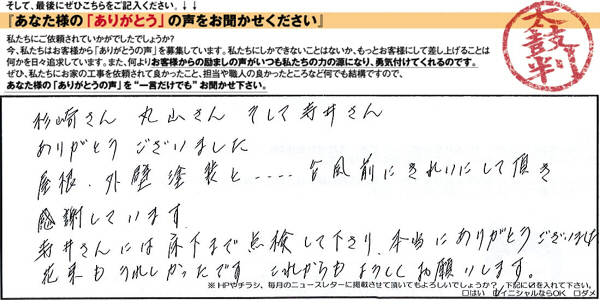 そして、最後にぜひこちらをご記入ください。↓↓
『あなた様の「ありがとう」の声をお聞かせください』
私たちにご依頼されていかがでしたでしょうか?
今、私たちはお客様から「ありがとうの声」を募集しています。私たちにしかできないことはないか、もっとお客様にして差し上げることは
何かを日々追求しています。また、何よりお客様からの励ましの声がいつも私たちの力の源になり、勇気付けてくれるのです。
ぜひ、私たちにお家の工事を依頼されて良かったこと、担当や職人の良かったところなど何でも結構ですので、
あなた様の「ありがとうの声」を“一言だけでも”お聞かせ下さい。
太鼓判
杉崎さん 丸山さん そして寿井さん
ありがとうございました
屋根・外壁塗装と.....台風前にきれいにして頂き
感謝しています。
寿井さんには床下まで点検して下さり、本当にありがとうございました
花束もうれしかったです これからもよろしくお願いします。
※HPやチラシ、毎月のニュースレターに掲載させて頂いてもよろしいでしょうか? 下記に☑を入れて下さい。
□はい イニシャルならOK □ダメ